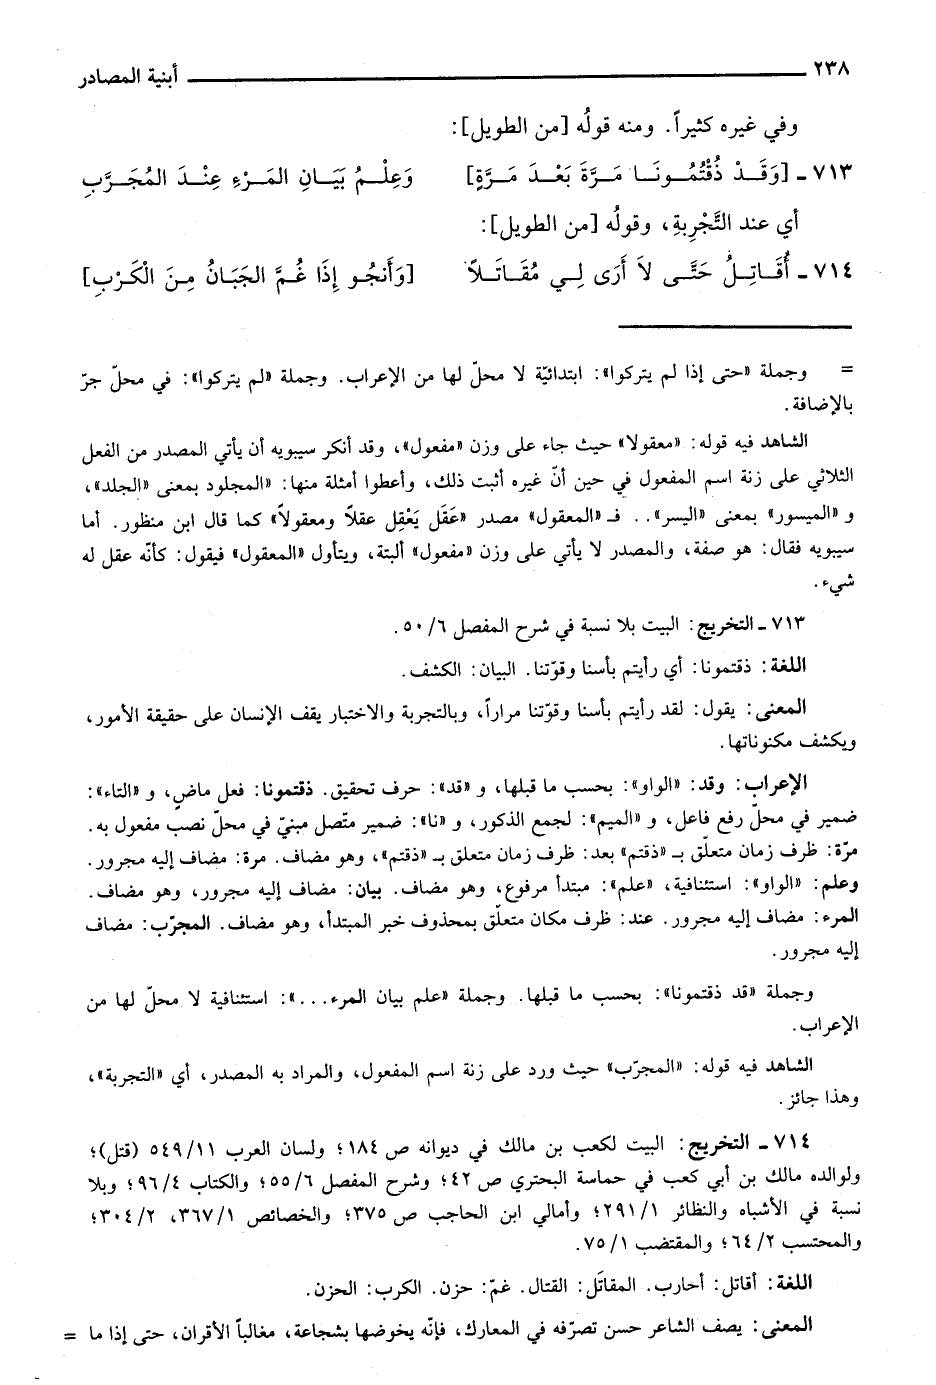 ٢٣٨ أبنية المصادر
وفي غيره كثيراً. ومنه قولُه [من الطويل]:
٧١٣ ـ [وَقَدْ ذُقْتُمُونَا مَرَّةً بَعْدَ مَرَّةٍ] وَعِلْمُ بَيَانِ المَرْءِ عِنْدَ المُجَرَّبِ
أي عند التَّجْرِبةِ، وقولُه [من الطويل]:
٧١٤ ـ أُقَاتِلُ حَتَّى لاَ أَرَى لِي مُقَاتَلاً [وَأَنجُو إِذَا غُمَّ الجَبَانُ مِنَ الْكَرْبِ]
= وجملة «حتى إذا لم يتركوا»: ابتدائيّة لا محلّ لها من الإعراب. وجملة «لم يتركوا»: في محلّ جرّ
بالإضافة.
الشاهد فيه قوله: «معقولا» حيث جاء على وزن «مفعول»، وقد أنكر سيبويه أن يأتي المصدر من الفعل
الثلاثي على زنة اسم المفعول في حين أنّ غيره أثبت ذلك، وأعطوا أمثلة منها: «المجلود بمعنى «الجلد»،
و «الميسور» بمعنى «اليسر».. فـ «المعقول» مصدر «عَقَل يَعْقِل عقلاً ومعقولاً» كما قال ابن منظور. أما
سيبويه فقال: هو صفة، والمصدر لا يأتي على وزن «مفعول» ألبتة، ويتأول «المعقول» فيقول: كأنّه عقل له
شيء.
٧١٣ ـ التخريج: البيت بلا نسبة في شرح المفصل ٦/ ٥٠.
اللغة: ذقتمونا: أي رأيتم بأسنا وقوّتنا. البيان: الكشف.
المعنى: يقول: لقد رأيتم بأسنا وقوّتنا مراراً، وبالتجربة والاختبار يقف الإنسان على حقيقة الأمور،
ويكشف مكنوناتها.
الإعراب: وقد: «الواو»: بحسب ما قبلها، و «قد»: حرف تحقيق. ذقتمونا: فعل ماضٍ، و «التاء»:
ضمير في محلّ رفع فاعل، و «الميم»: لجمع الذكور، و «نا»: ضمير متّصل مبنيّ في محلّ نصب مفعول به.
مرّة: ظرف زمان متعلّق بـ «ذقتم» بعد: ظرف زمان متعلق بـ «ذقتم»، وهو مضاف. مرة: مضاف إليه مجرور.
وعلم: «الواو»: استئنافية، «علم»: مبتدأ مرفوع، وهو مضاف. بيان: مضاف إليه مجرور، وهو مضاف.
المرء: مضاف إليه مجرور. عند: ظرف مكان متعلّق بمحذوف خبر المبتدأ، وهو مضاف. المجرّب: مضاف
إليه مجرور.
وجملة «قد ذقتمونا»: بحسب ما قبلها. وجملة «علم بيان المرء...»: استئنافية لا محلّ لها من
الإعراب.
الشاهد فيه قوله: «المجرّب» حيث ورد على زنة اسم المفعول، والمراد به المصدر، أي «التجربة»،
وهذا جائز.
٧١٤ ـ التخريج: البيت لكعب بن مالك في ديوانه ص ١٨٤؛ ولسان العرب ١١/ ٥٤٩ (قتل)؛
ولوالده مالك بن أبي كعب في حماسة البحتري ص ٤٢؛ وشرح المفصل ٦/ ٥٥؛ والكتاب ٤/ ٩٦؛ وبلا
نسبة في الأشباه والنظائر ١/ ٢٩١؛ وأمالي ابن الحاجب ص ٣٧٥؛ والخصائص ١/ ٣٦٧، ٢/ ٣٠٤؛
والمحتسب ٢/ ٦٤؛ والمقتضب ١/ ٧٥.
اللغة: أقاتل: أحارب. المقاتَل: القتال. غمّ: حزن. الكرب: الحزن.
المعنى: يصف الشاعر حسن تصرّفه في المعارك، فإنّه يخوضها بشجاعة، مغالباً الأقران، حتى إذا ما =